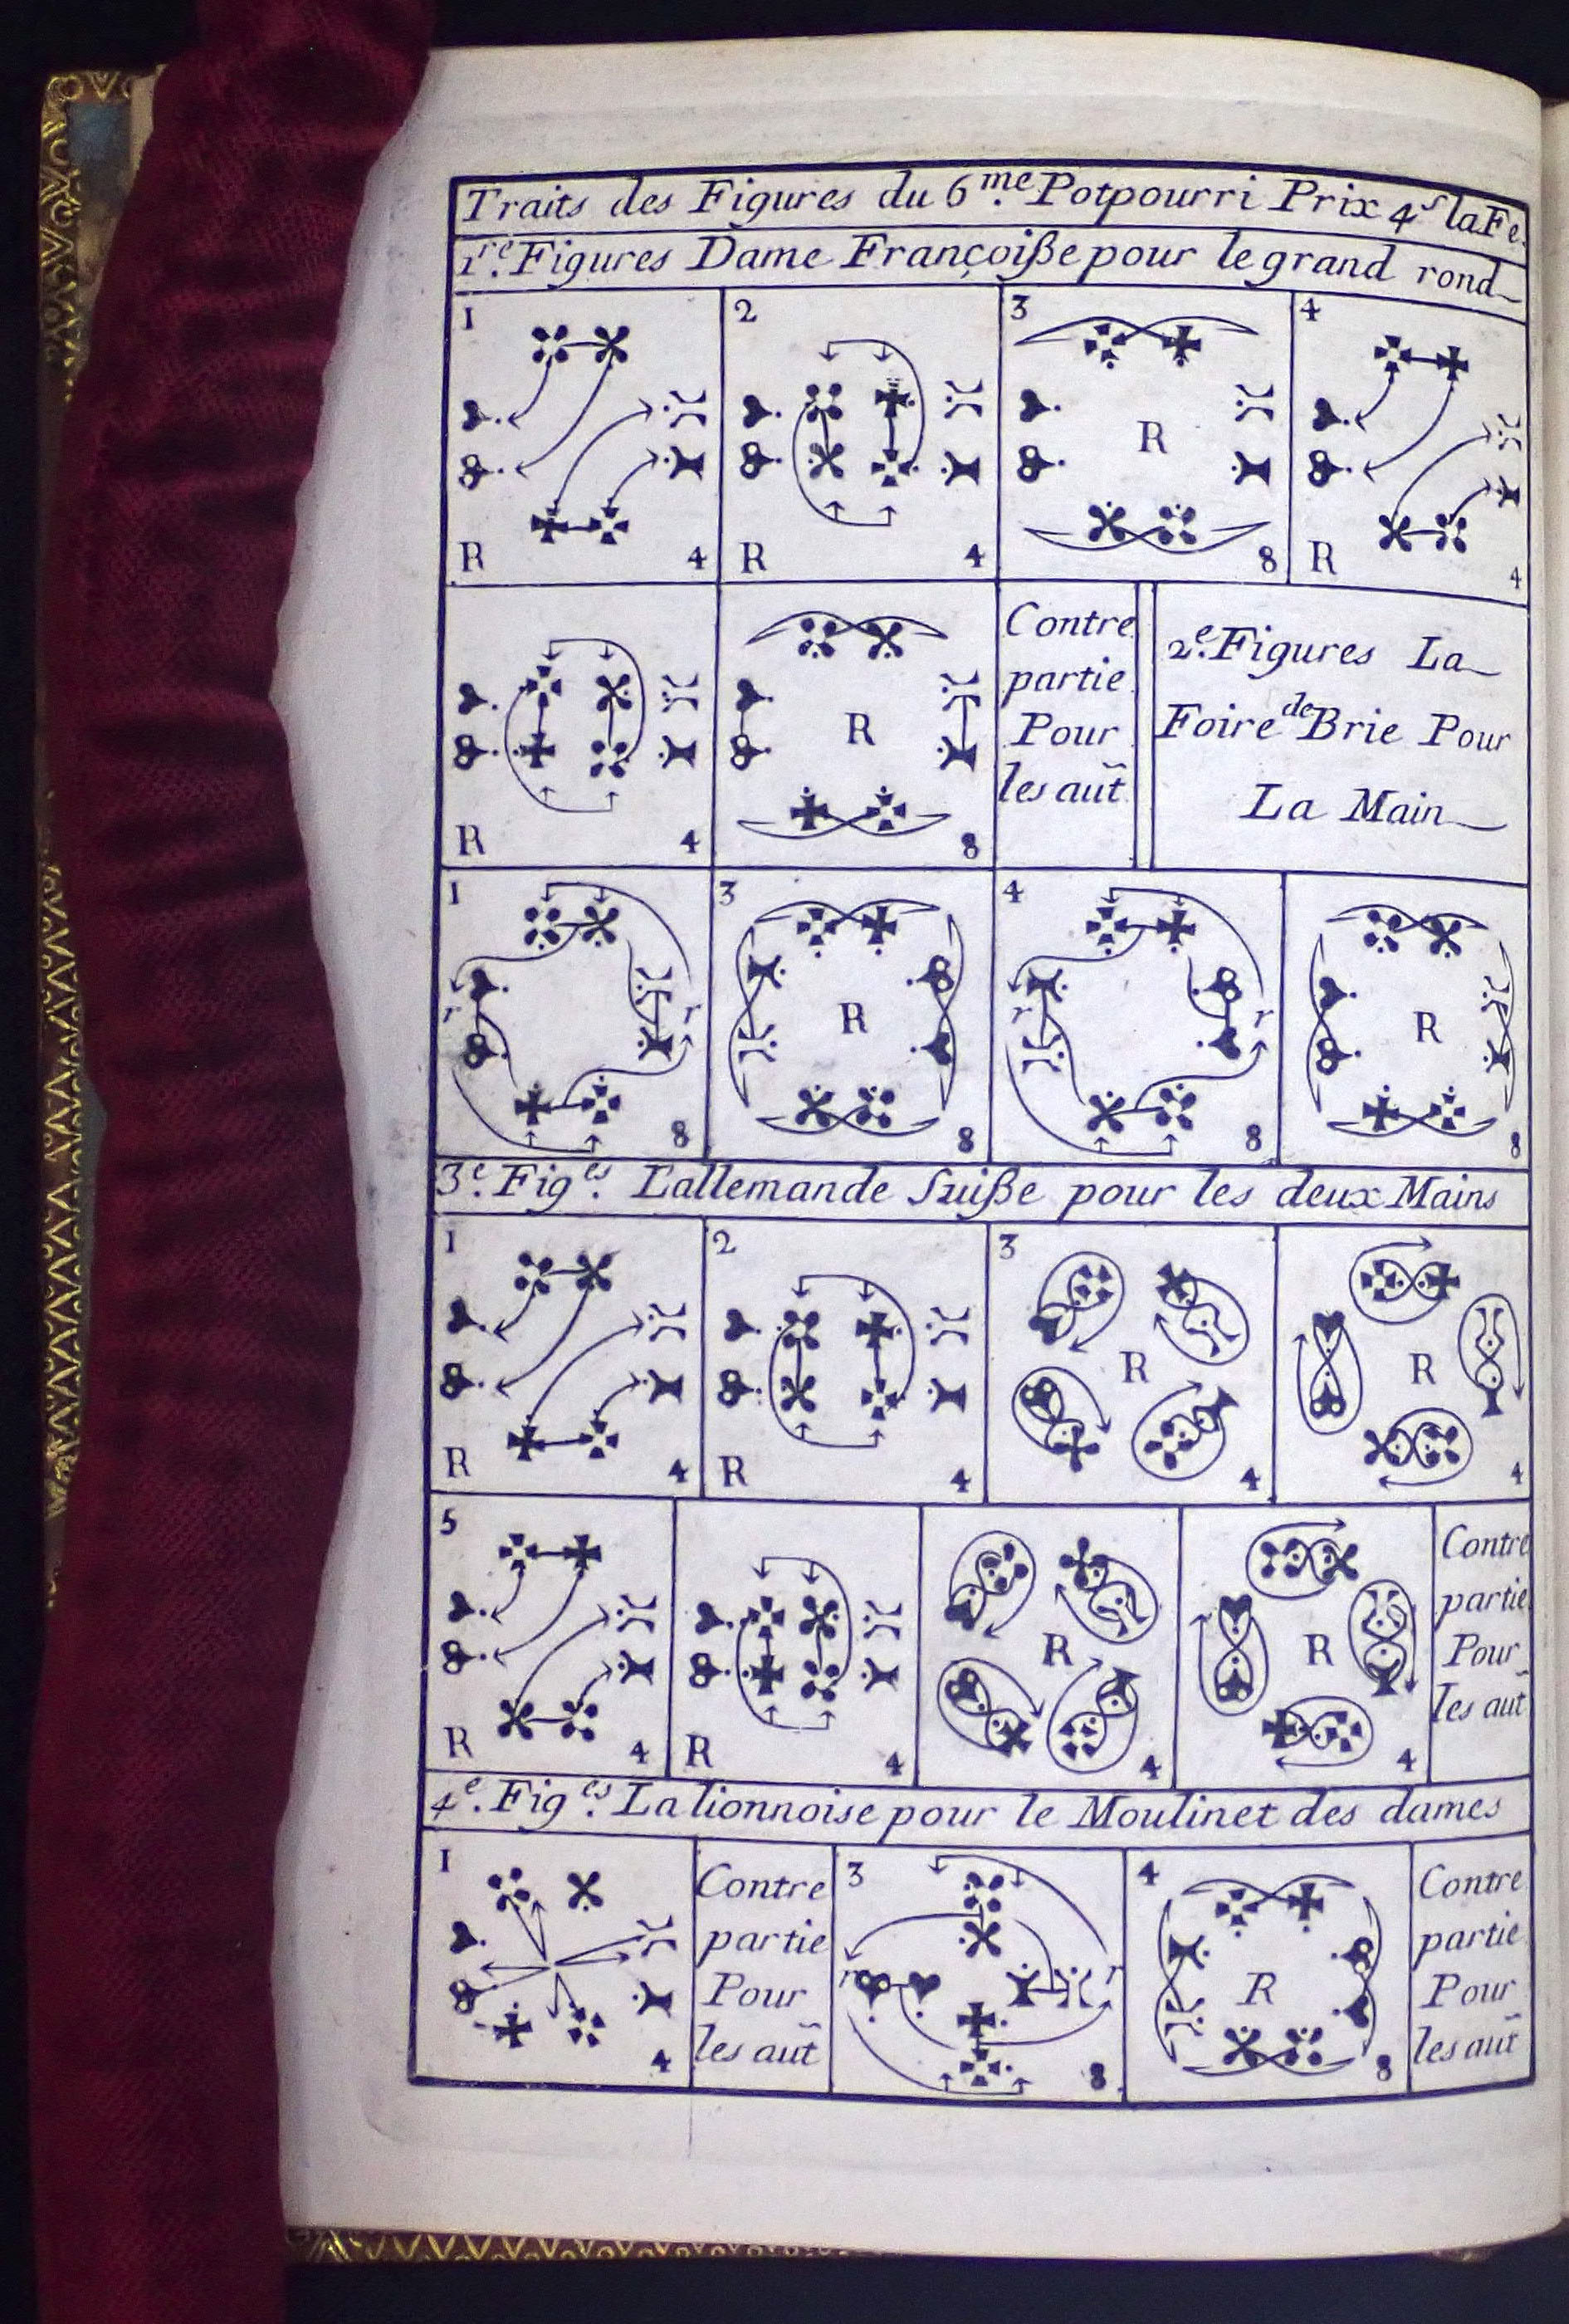 Traits des Figures du 6.me Potpourri Prix 4s la Fe.
1re. Figures Dame Françoiße pour le grand rond
1 2 3 4
R 4 R 4 R 8 R 4
R 4 R 8
Contre
partie
Pour
les aut̃
2e. Figures La
Foire de Brie Pour
La Main
1 3 4
r r R r r R
8 8 8 8
3e. Fig.es Lallemande Suiße pour les deux Mains
1 2 3
R R
R 4 R 4 4 4
5
R R
R 4 R 4 4 4
Contre
partie
Pour
les aut̃
4e. Fig.es La lionnoise pour le Moulinet des dames
1
4
Contre
partie
Pour
les aut̃
3
r r
8
4
R
8
Contre
partie
Pour
les aut̃